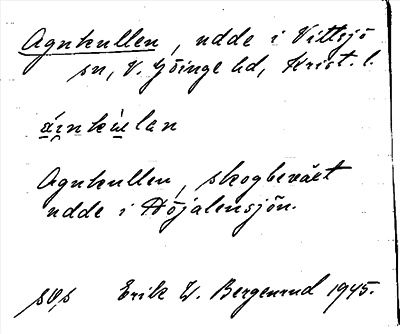 Agnkullen, udde i Vittsjö
sn, V. Göinge hd, Krist. l.
Agnkullen, skogbeväxt
udde i Höjalensjön.
Erik W. Bergenrud 1945.